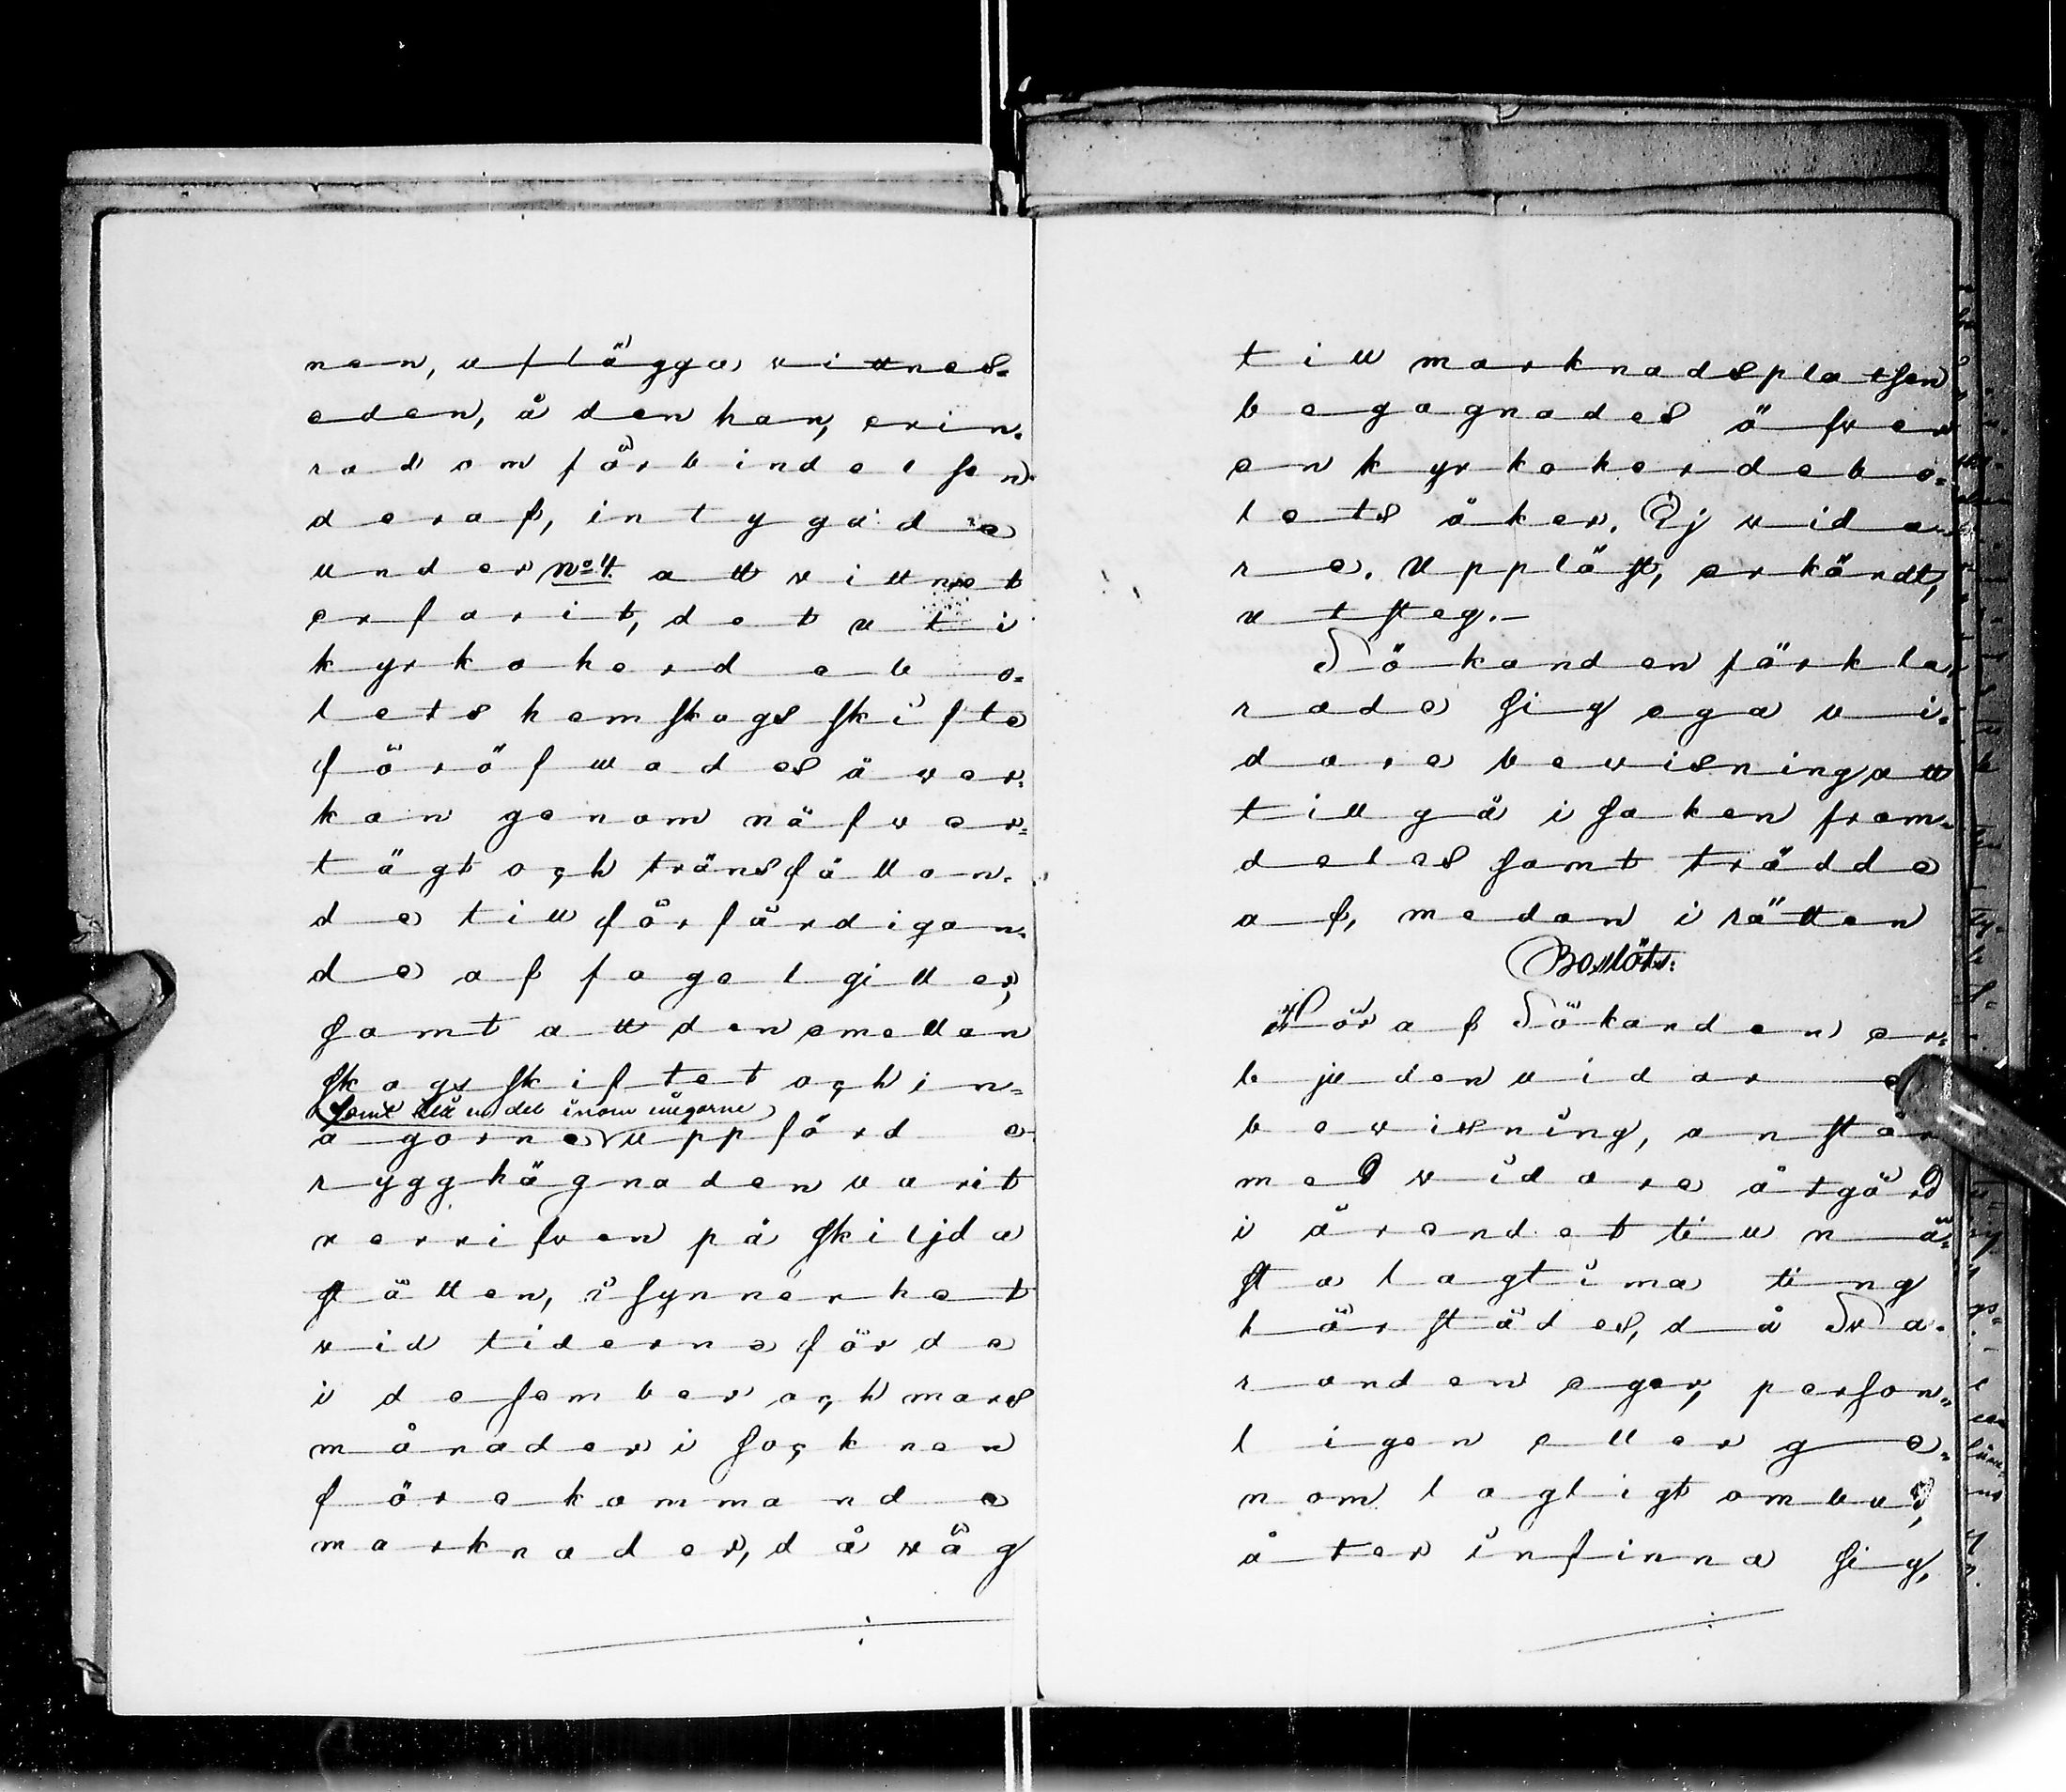 nen, aflägga vittnes-
eden, å den han, erin-
rad om förbindelsen
deraf, intygade
under No 4. att vittnet
erfarit, det uti
kyrkoherdebo-
lets hemskogsskifte
föröfwades åwer-
kan genom näfwer-
tägt och tränsfällan-
de till förfärdigan-
de af fogelgiller,
samt att den emellan
skogsskiftet och in-
samt till en del inom ägorne
ägorne uppförde
rygghägnaden varit
nerrifven på skiljda
ställen, i synnerhet
vid tiderne för de
i desember och mars
månader i socknen
förekommande
marknader, då väg
till marknadsplatsen
begagnades öfver
en kyrkoherdebo-
lets åker. Ej vida-
re. Uppläst, erkändt,
utsteg.-
Sökanden förkla-
rade sig ega vi-
dare bevisning att
tillgå i saken fram-
deles samt trädde
af, medan i rätten
Beslöts:
För af Sökanden er-
bjuden vidare
bevisning, anstår
med vidare åtgärd
i ärendet till nä-
sta lagtima ting
härstädes, då Sva-
randen eger, person-
ligen eller ge-
nom lagligt ombud,
åter infinna sig,